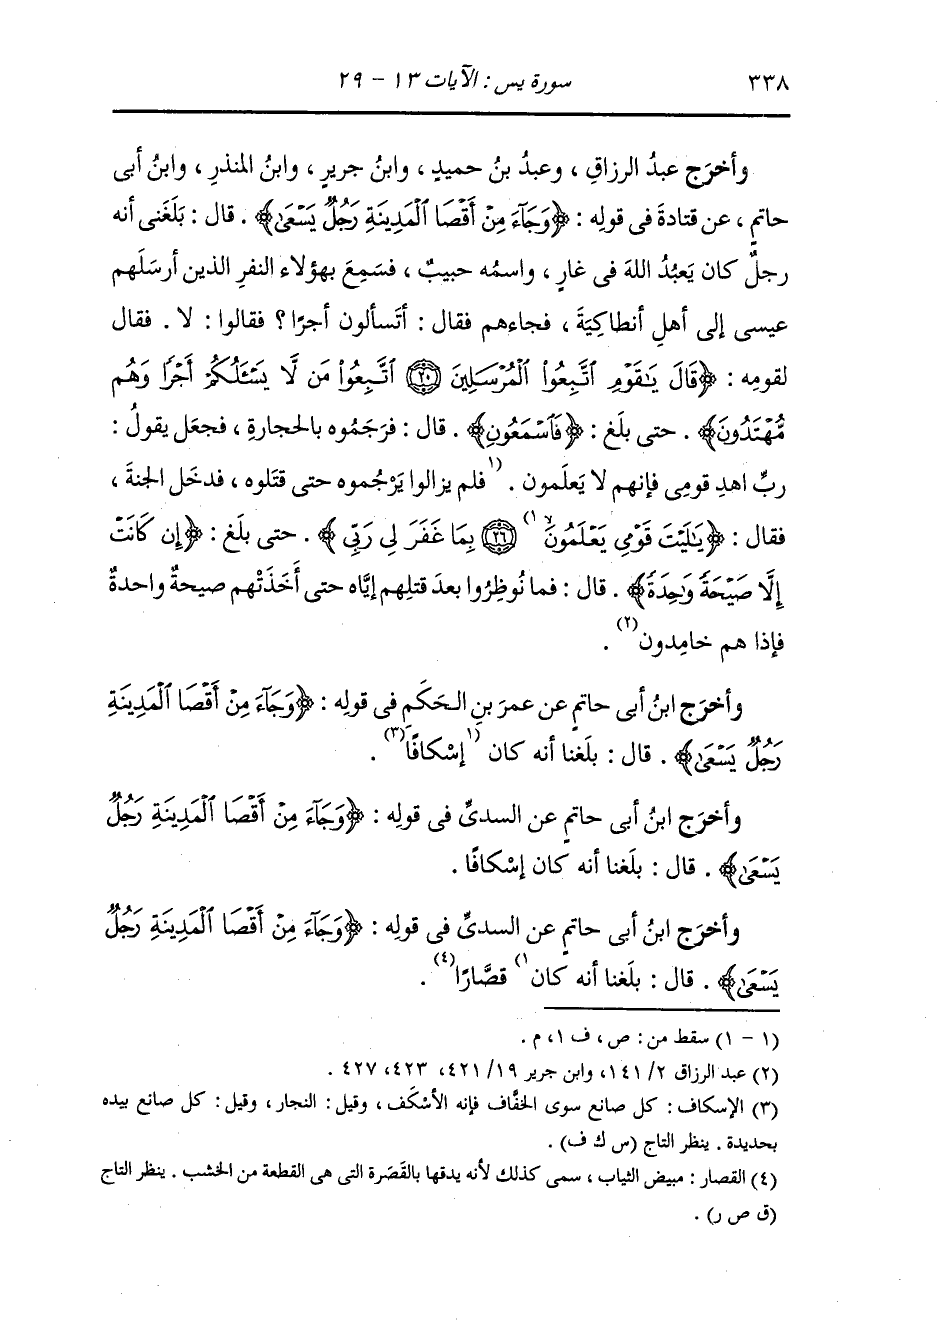 ٣٣٨
سورة يس : الآيات ١٣ - ٢٩
وأخرَج عبدُ الرزاقِ ، وعبدُ بنُ حميدٍ ، وابنُ جريرٍ ، وابنُ المنذرِ ، وابنُ أبى
حاتمٍ ، عن قتادةَ فى قولِه : ﴿وَجَآءَ مِنْ أَقْصَا ٱلْمَدِينَةِ رَجُلٌ يَسْعَىٰ﴾ . قال : بَلَغَنى أنه
رجلٌ كان يَعبُدُ اللهَ فى غارٍ ، واسمُه حبيبٌ ، فسَمِعَ بهؤلاء النفرِ الذين أرسَلَهم
عيسى إلى أهلِ أنطاكِيَةَ ، فجاءهم فقال : أتَسألون أجرًا ؟ فقالوا : لا . فقال
لقومِه : ﴿قَالَ يَٰقَوْمِ ٱتَّبِعُواْ ٱلْمُرْسَلِينَ (٢٠) ٱتَّبِعُواْ مَن لَّا يَسْـَٔلُكُمْ أَجْرًا وَهُم
مُّهْتَدُونَ﴾ . حتى بلَغ : ﴿فَٱسْمَعُونِ﴾ . قال : فرَجَمُوه بالحجارةِ ، فجعَل يقولُ :
ربِّ اهدِ قومِى فإنهم لا يَعلَمون . (١فلم يزالوا يَرْجُموه حتى قتَلوه ، فدخَل الجنةَ ،
فقال : ﴿يَٰلَيْتَ قَوْمِى يَعْلَمُونَ١) (٢٦) بِمَا غَفَرَ لِى رَبِّى﴾ . حتى بلَغ : ﴿إِن كَانَتْ
إِلَّا صَيْحَةً وَٰحِدَةً﴾ . قال : فما نُوظِرُوا بعدَ قتلِهم إيَّاه حتى أَخَذَتْهم صيحةٌ واحدةٌ
فإذا هم خامِدون(٢) .
وأخرَج ابنُ أبى حاتمٍ عن عمرَ بنِ الحَكَمِ فى قولِه : ﴿وَجَآءَ مِنْ أَقْصَا ٱلْمَدِينَةِ
رَجُلٌ يَسْعَىٰ﴾ . قال : بلَغنا أنه كان (١إسْكافًا(٣) .
وأخرَج ابنُ أبى حاتمٍ عن السدىِّ فى قولِه : ﴿وَجَآءَ مِنْ أَقْصَا ٱلْمَدِينَةِ رَجُلٌ
يَسْعَىٰ﴾ . قال : بلَغنا أنه كان إسْكافًا .
وأخرَج ابنُ أبى حاتمٍ عن السدىِّ فى قولِه : ﴿وَجَآءَ مِنْ أَقْصَا ٱلْمَدِينَةِ رَجُلٌ
يَسْعَىٰ﴾ . قال : بلَغنا أنه كان١) قصَّارًا(٤) .
(١ - ١) سقط من : ص ، ف ١، م .
(٢) عبد الرزاق ٢/ ١٤١، وابن جرير ١٩/ ٤٢١، ٤٢٣، ٤٢٧ .
(٣) الإسكاف : كل صانع سوى الخفَّاف فإنه الأسْكَف ، وقيل : النجار ، وقيل : كل صانع بيده
بحديدة . ينظر التاج (س ك ف) .
(٤) القصار : مبيض الثياب ، سمى كذلك لأنه يدقها بالقَصَرة التى هى القطعة من الخشب . ينظر التاج
(ق ص ر) .